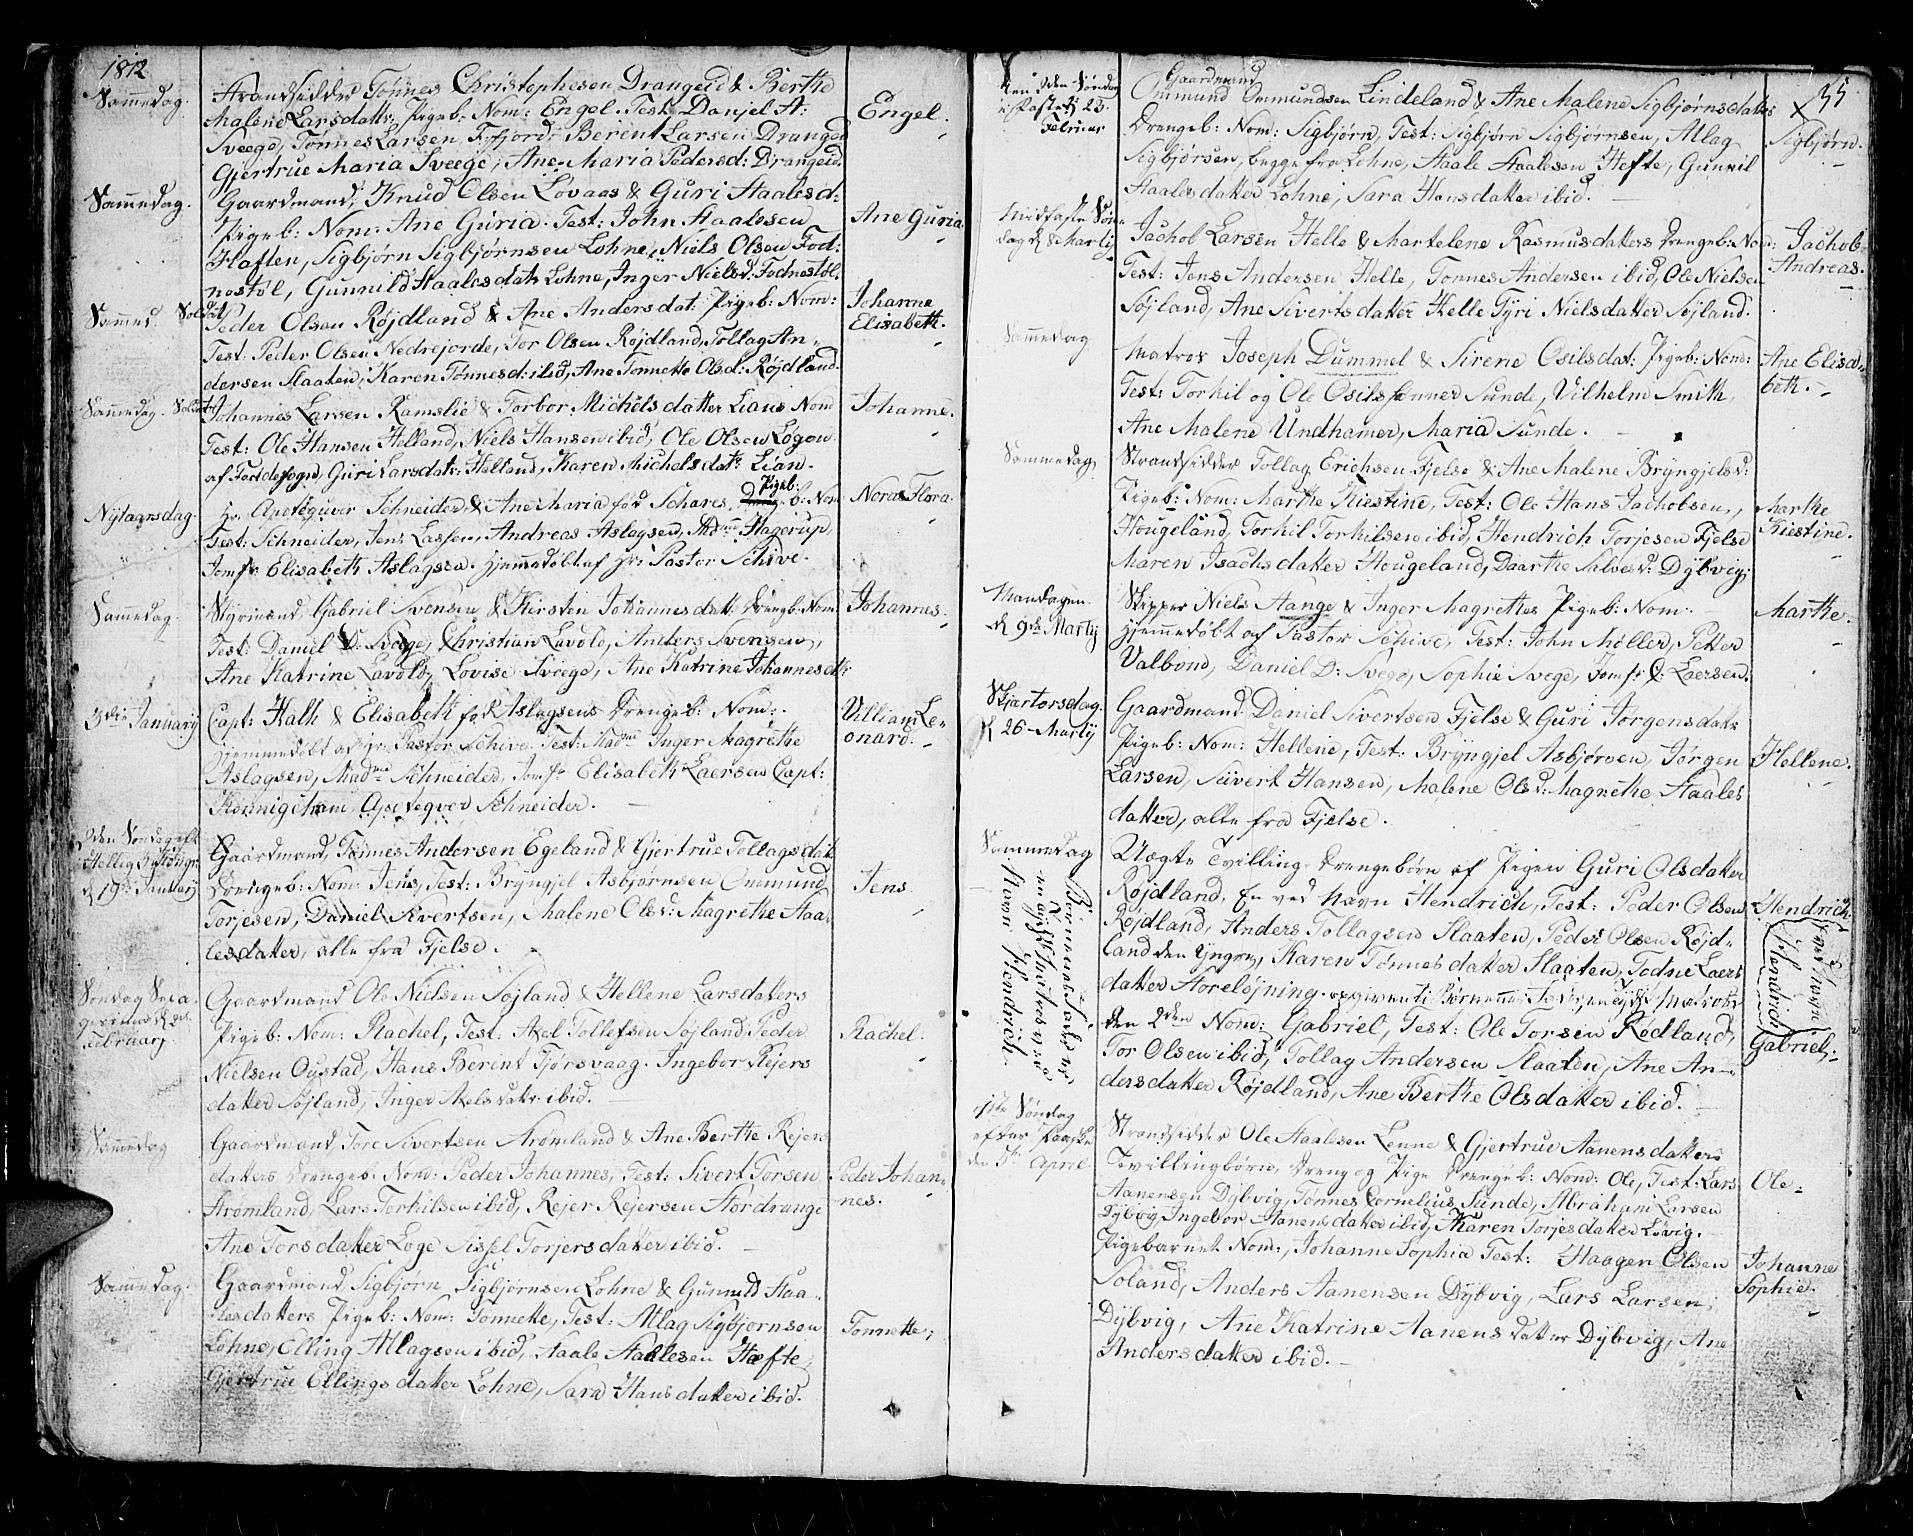 1812
Sammedag.
Strandsidder Tønnes Christophesen Drangeid & Berthe
Malene Larsdattr: Pigeb: Nom: Engel. Test: Danjel A:
Sveege, Tønnes Larsen Berent Larsen Drangeid
Gjertrue Maria Sveege, Ane Maria Pedersd: Drangeid.
Engel.
Sammedag.
Gaardmand, Knud Olsen Løvaas & Guri Staalesd:
Pigeb: Nom: Ane Guria. Test: John Staalesen
Haften, Sigbjørn Sigbjørnsen Lohne, Niels Olsen Fod:
nestøl, Gunnild Staalesdatr Lohne, Inger Nielsd. Fodnestøl.
Ane Guria
Sammed. Soldat
Peder Olsen Røjdland & Ane Andersdat: Pigeb: Nom:
Test: Peder Olsen Nedrejorde, Tor Olsen Røjdland, Tollag An„
dersen Slaaten, Karen Tønnesd: ibid, Ane Tonnette Olsd: Røjdland.
Johanne
Elisabeth.
Sammedag. Soldat
Johannes Larsen Ramslie & Torbor Michelsdatter Lians Nom
Test: Ole Hansen Helland, Niels Hansen ibid, Ole Olsen Løgan
af Fordesogn, Guri Larsdatr: Helland, Karen Michelsdatr Lian.
Johanne.
Nytaarsdag.
Hr. Apoteqver Schneider & Ane Maria fød Schares. Pigeb: Nom
Test: Schneider, Jens Lassen, Andreas Aslagsen, Mdme Hagerup,
Jomfr Elisabeth Aslagsen. hjemmedøbt af Hr: Pastor Schive.
Nora Flora.
Sammedag.
Styrmand Gabriel Svensen & Kirsten Johannesdatt: Drengb: Nom
Test: Daniel D: Svege, Christian Lavold, Anders Svensen,
Ane Katrine Lavold, Lovise Sveege, Ane Katrine Johannesdtr
Johannes.
3die Januarij
Capt: Kalh & Elisabeth fød Aslagsens Drengeb: Nom:
hjemmedøbt af Hr. Pastor Schive. Test: Madme Inger Magrethe
Aslagsen, Madme Schneider, Jomfr Elisabeth Laersen Capt:
Apoteqver Schneider.
Uilliam Le-
onard.
2den Søndag eft
Hellig 3 Konger
d 19de Januarij
Gaardmand, Tønnes Andersen Egeland & Gjertrue Tollagsdat:
Drengeb: Nom: Jens, Test: Brÿngjel Asbjørnsen Ommund
Torjesen, Daniel Sivertsen, Malene Olsd: Magrethe Staa„
lesdatter, alle fra Fjelse.
Jens.
Søndag Sexa-
gesima d 2den
Februarij.
Gaardmand Ole Nielsen Søjland & Hellene Larsdatters
Pigeb: Nom: Rachel, Test: Axel Tollefsen Søjland, Peder
Nielsen Oustad, Hans Berint Fjørsvaag. Ingebor Rejers
datter Søjland, Inger Axelsdatr. ibid.
Rachel.
Sammedag
Gaardmand Tore Sivertsen Strømland & Ane Berthe Rejers
datters Drengeb: Nom: Peder Johannes, Test: Sivert Torsen
Strømland, Lars Torkilsen ibid, Rejer Rejersen Nordrange
Ane Torsdatter Loge Sissel Torjersdatter ibid.
Peder Johan-
nes.
Sammedag.
Gaardmand Sigbjørn Sigbjørnsen Lohne & Gunnild Staa„
lesdatters Pigeb: Nom: Tonnette, Test: Atlag Sigbjørnsen
Lohne, Elling Atlagsen ibid, Staale Staalesen Hæfte
Gjertrue Ellingsdatter Lohne, Sara Hansdatter ibid.
Tonnette;
35
den 2den Søndag
i Faste d 23.
Februar
Gaardmand
Ommund Ommundsen Lindeland & Ane Malene Sigbjørnsdatters
Drengeb: Nom: Sigbjørn, Test: Sigbjørn Sigbjørnsen, Atlag
Sigbjørsen, begge fra Lohne, Staale Staalesen Hefte, Gunnil
Staalesdatter Lohne, Sara Hansdatter ibid.
Sigbjørn.
Midfaste Søn-
dag d 8 Martij
Jachob Larsen Helle & Martelene Rasmusdatters Drengeb: Nom:
Test: Jens Andersen Helle, Tønnes Andersen ibid, Ole Nielsen
Søjland, Ane Sivertsdatter Helle Tyri Nielsdatter Søjland.
Jachob
Andreas.
Sammedag
Matros Joseph Dummel & Sirene Osilsdat: Pigeb: Nom:
Test: Torkil og Ole Osilssønner Sunde, Vilhelm Smith,
Ane Malene Undhamer, Maria Sunde.
Ane Elisa-
beth.
Sammedag
Strandsidder Tollag Erichsen Fjelse & Ane Malene Brÿngjelsd:
Pigeb: Nom: Marthe Kiestine, Test: Ole Hans Jachobsen,
Hougeland, Torkil Torkilsen ibid, Hendrich Torjesen Fjelse
Maren Isachsdatter Hougeland, Daarthe Salvesd: Dÿbvig;
Marthe
Kiestine.
Mandagen
d 9de Martij
Skipper Niels Aange & Inger Magrethes Pigeb: Nom:
hjemmedøbt af Pastor Schive, Test: John Møller, Petter
Valbond, Daniel D: Svege, Sophie Svege, Jomfr: Laersen.
Marthe.
Skjærtorsdag
d 26 Martij
Gaardmand Daniel Sivertsen Fjelse & Guri Jørgensdatr
Pigeb: Nom: Hellene, Test: Brÿngjel Asbjørnsen, Jørgen
Larsen, Sivert Hansen, Malene Olsd: Magrethe Staales
datter, alle fra Fjelse.
Hellene.
Sammedag
Uægte Tvilling Drengebørn af Pigen Guri Olsdatter
Røjdland, En ved Navn Hendrich, Test: Peder Olsen
Røjdland, Anders Tollagsen Slaaten, Peder Olsen Røjd„
land den Yngre, Karen Tønnesdatter Slaaten, Todne Laers
datter Storeløjning. opgiven til Børnenes Fader, en Tydsk Matros
den 2den Nom: Gabriel, Test: Ole Torsen Rødland,
Tor Olsen ibid, Tollag Andersen Slaaten, Ane An-
dersdatter Røjdland, Ane Berthe Olsdatter ibid.
Børnenes Fader er
en Matros ved
Navn Hendrich.
Hendrich
ved Navn
Hendrich
Gabriel.
1ste Søndag
efter Paaske
den 5te April
Strandsidder Ole Staalesen Lenne & Gjertrue Aanensdatters
Tvillingbørn, Dreng og Pige Drengeb: Nom: Ole, Test: Lars
Aanensen Dÿbvig, Tønnes Cornelius Sunde, Abraham Larsen
Dÿbvig, Ingebor Aanensdatter ibid, Karen Torjesdatter Løvig.
Pigebarnet Nom:, Johanne Sophia Test: Haagen Olsen
Soland, Anders Aanensen Dÿbvig, Lars Larsen
Dÿbvig, Ane Katrine Aanensdatter Dÿbvig, Ane
Andersdatter ibid.
Ole.
Johanne
Sophie.